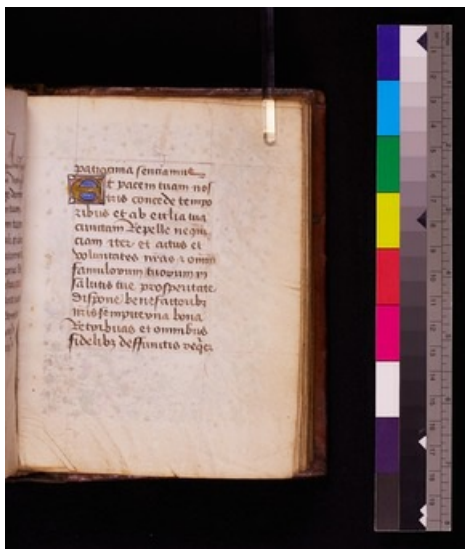 patrocinia sentiamus
Et pacem tuam nos
tris concede tempo
ribus et ab ecclia tua
cunctam Repelle nequi
ciam iter et actus et
voluntates nras z omniu
famulorum tuorum in
salutis tue prosperitate
dispone benefactoribz
nris sempiterna bona
Retribuas et omnibus
fidelibz deffunctis req̃ez